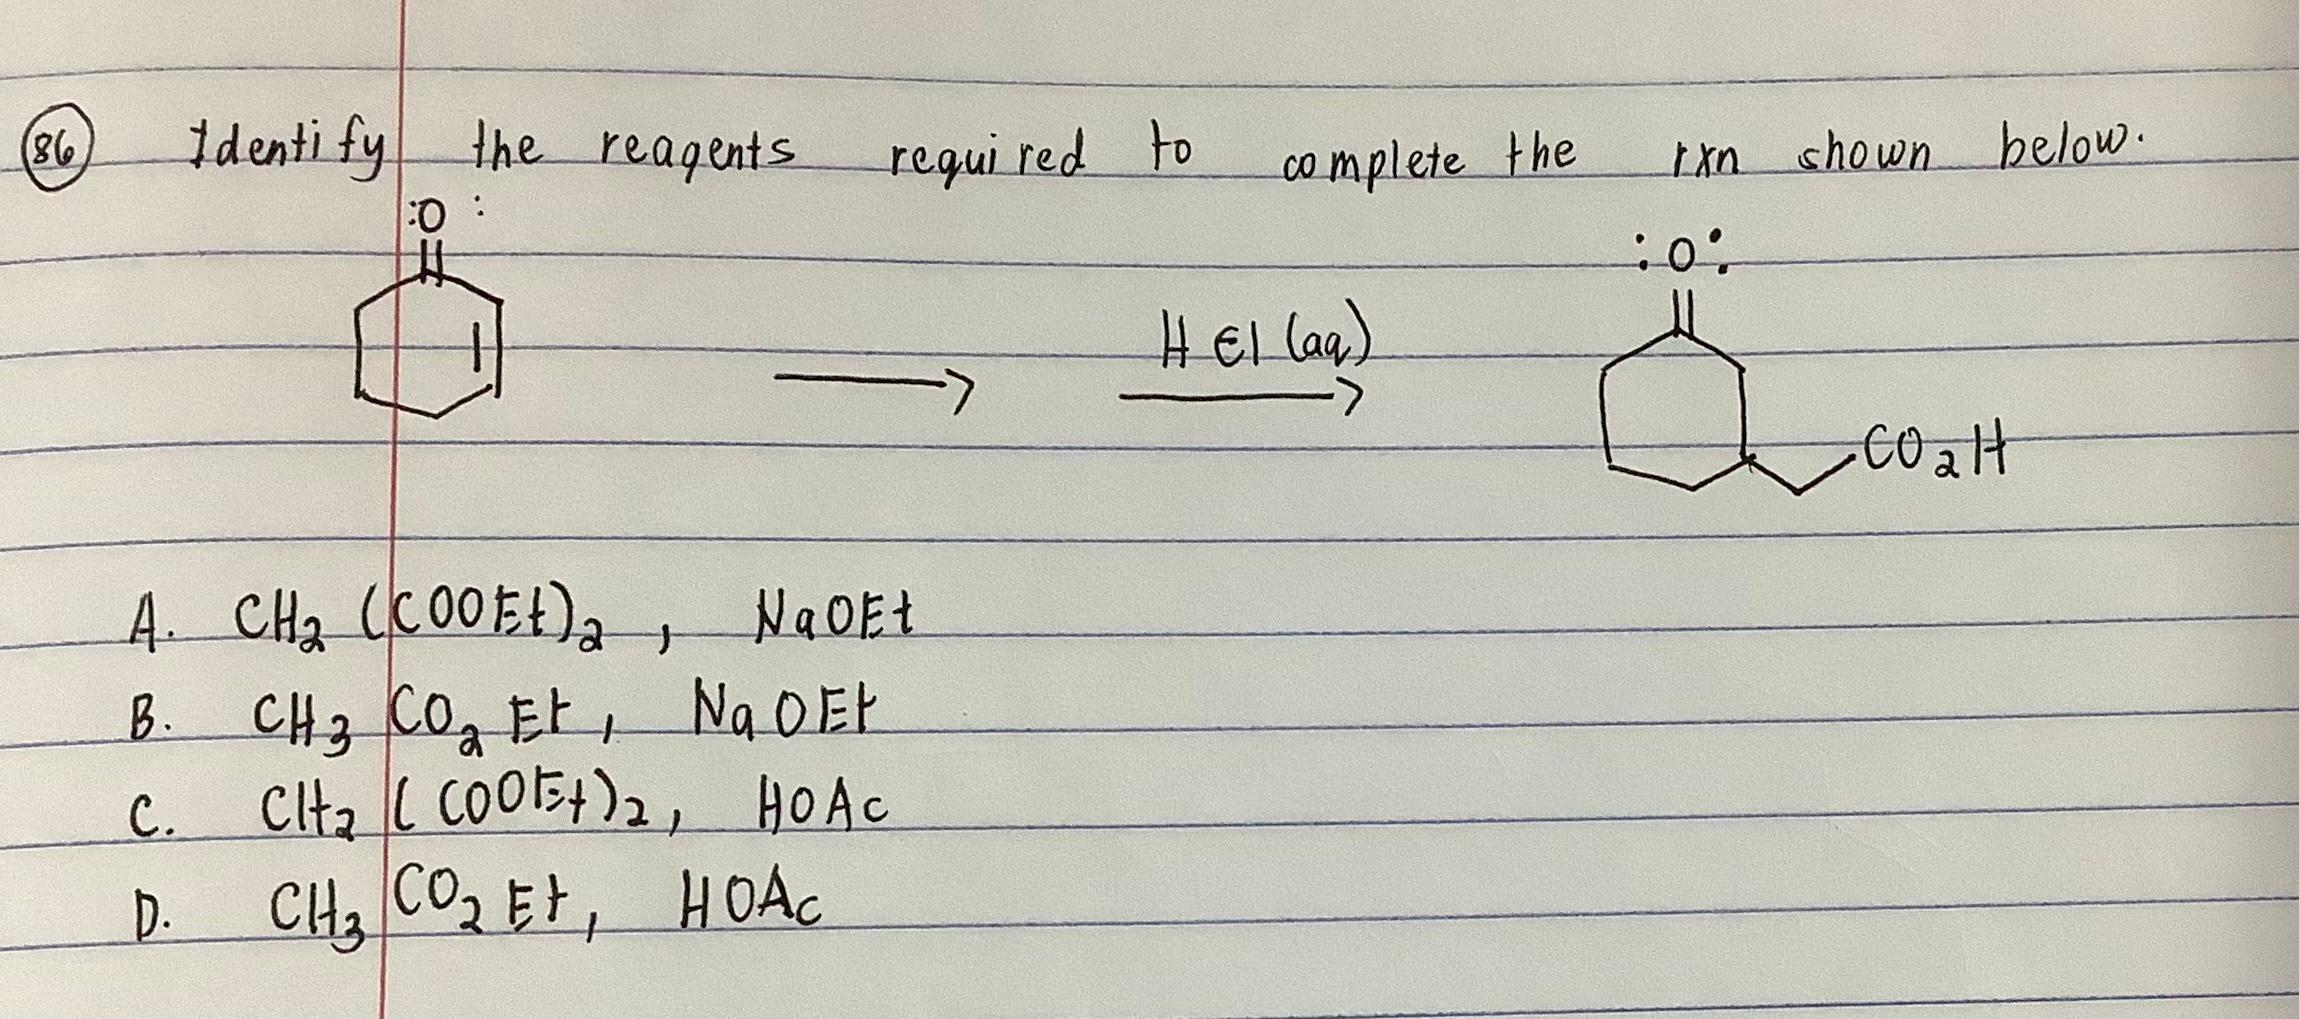 86 Identify the reagents required to complete the rxn shown below.
:O: :O:
HCl (aq)
CO2H
A. CH2 (COOEt)2, NaOEt
B. CH3 CO2 Et, NaOEt
C. CH2 (COOEt)2, HOAc
D. CH3 CO2 Et, HOAc